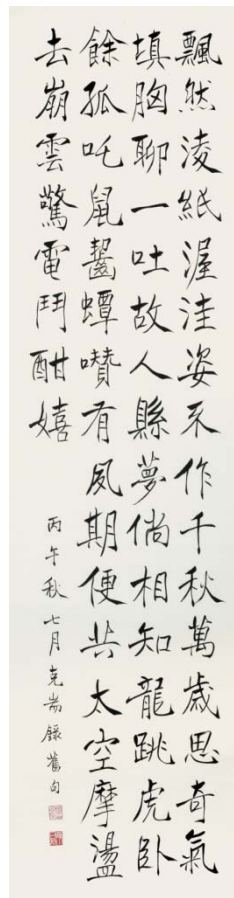 飄然淩紙渥洼姿不作千秋萬歲思奇氣
填胸聊一吐故人縣夢倘相知龍跳虎卧
餘孤吒鼠齧蟫囋有夙期便共太空摩盪
去崩雲驚電鬥酣嬉
丙午秋七月克耑錄舊句